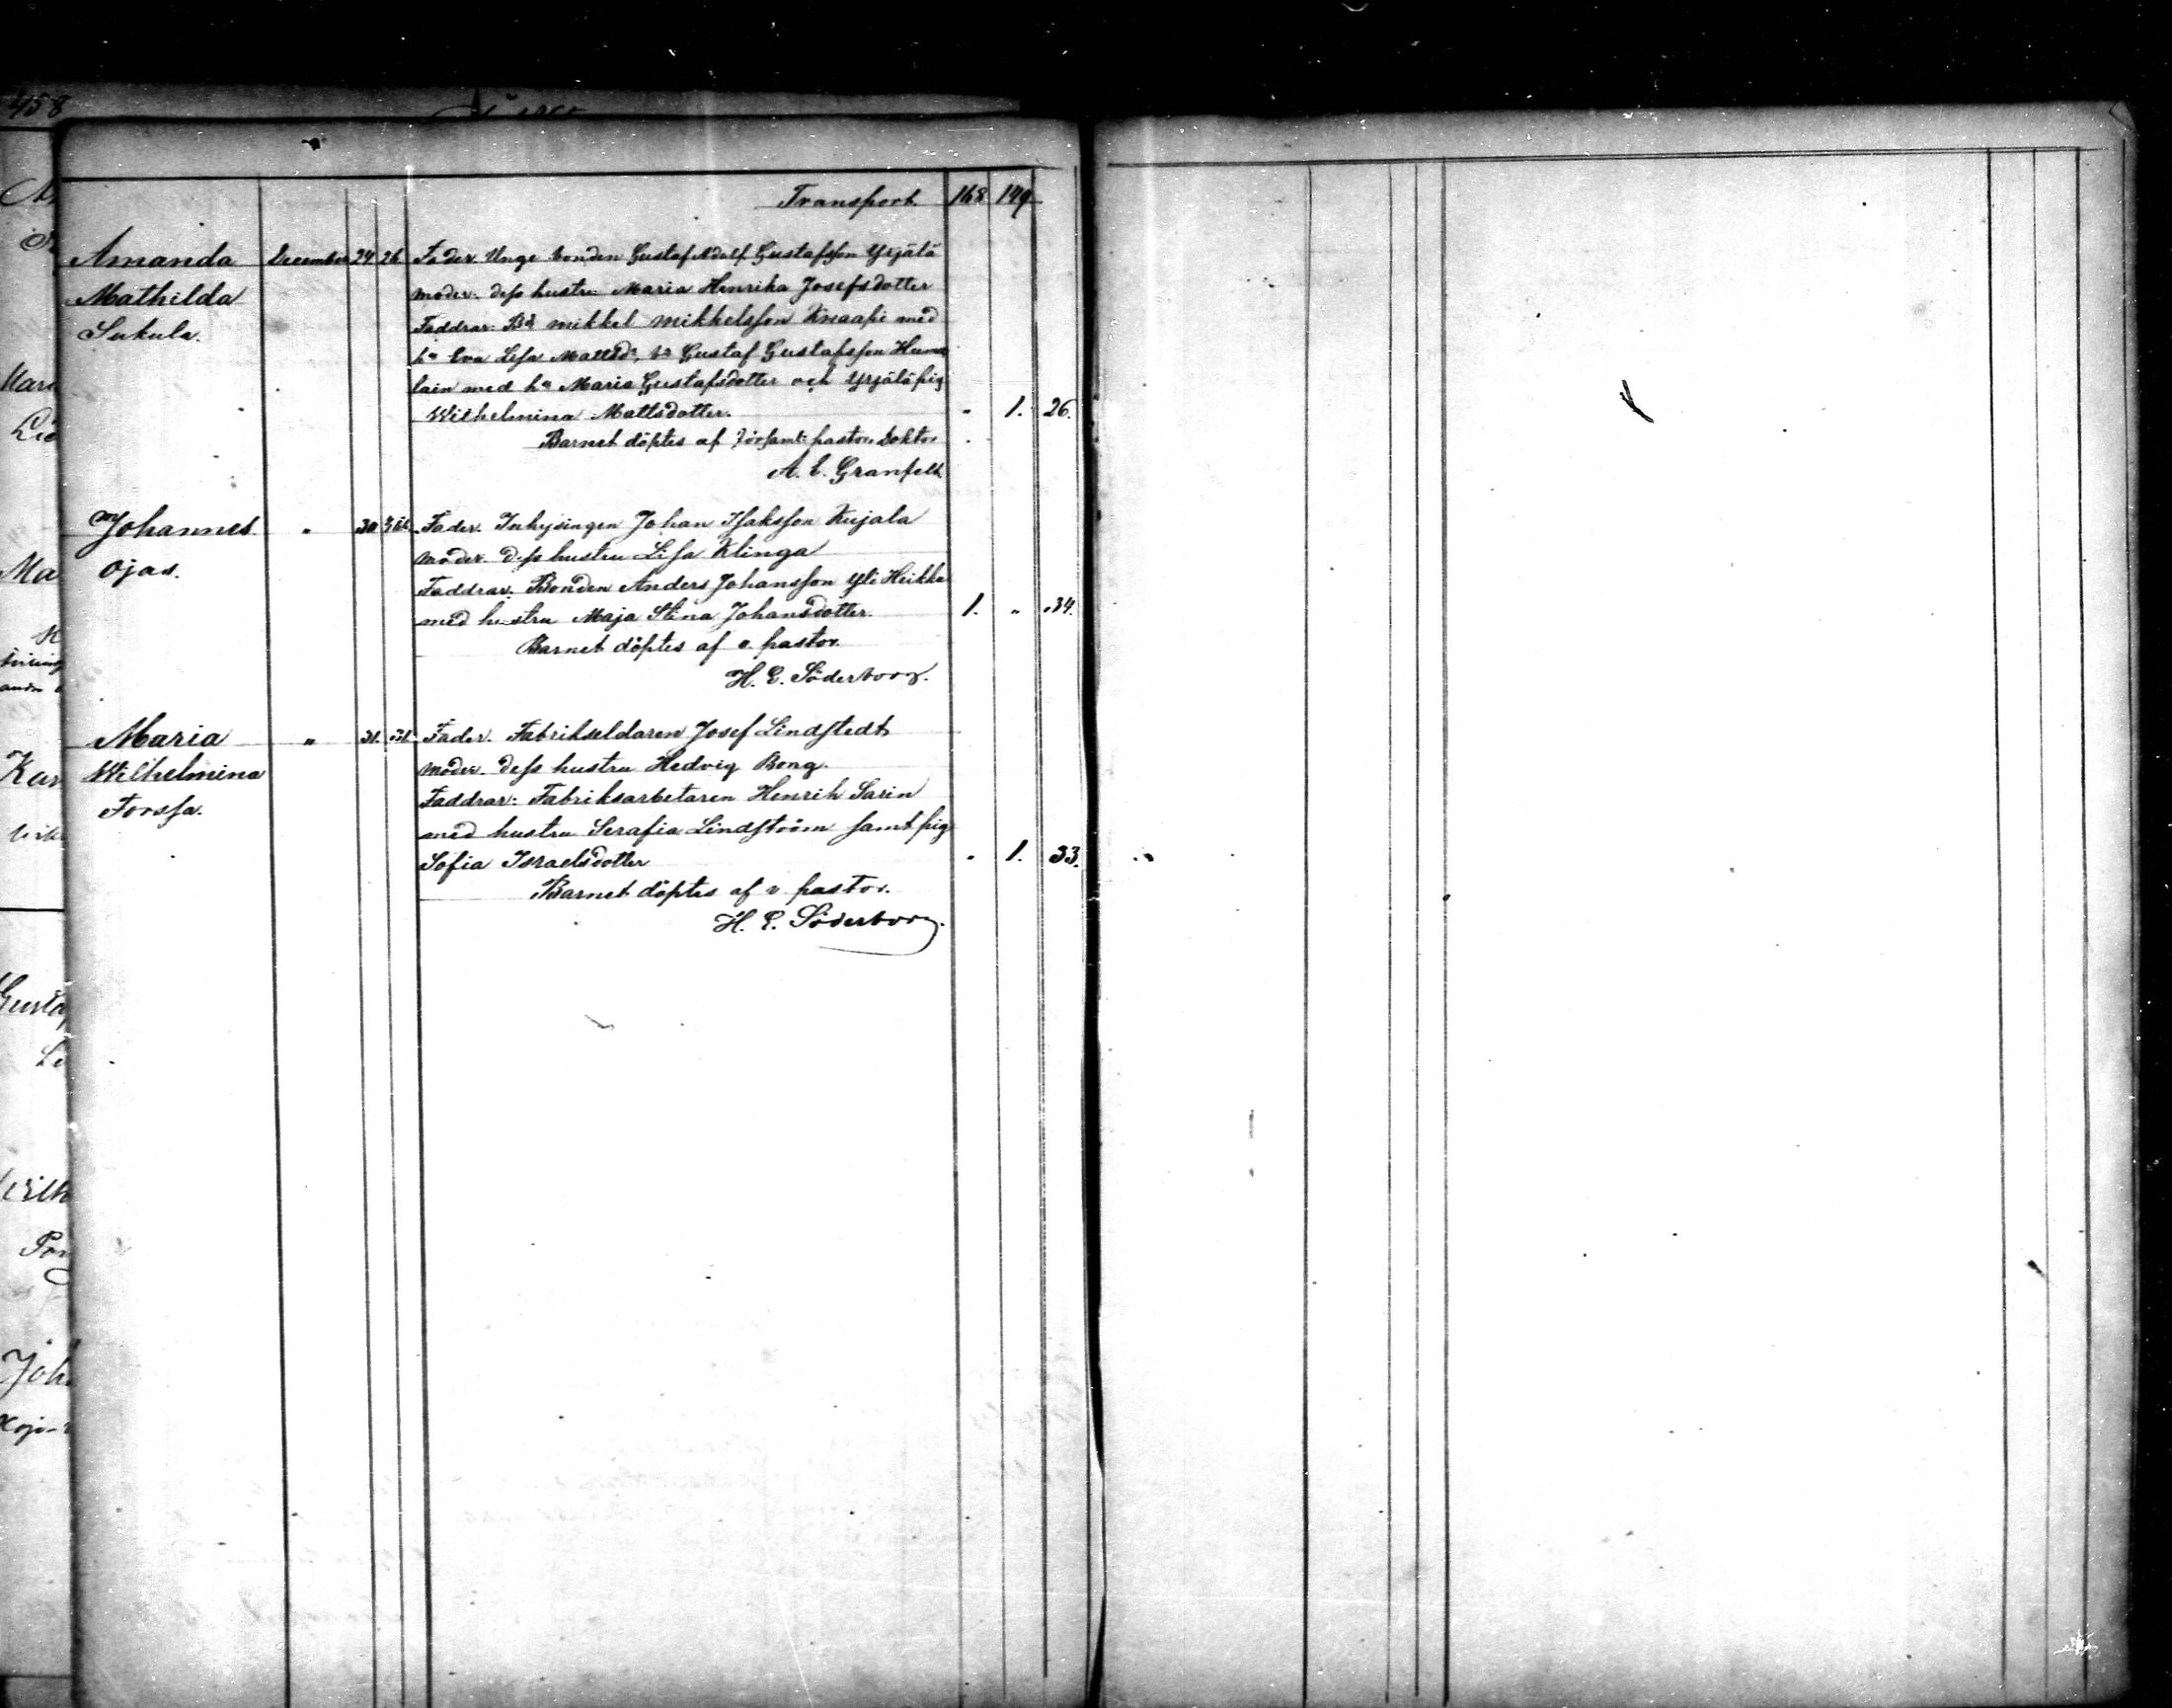 458
Transport. 168 149
Amanda December 24 26 Fader. Unge bonden Gustaf Adolf Gustafsson Yrjälä
Mathilda Moder. dess hustru Maria Henrika Josefsdotter
Sukula. Faddrar: Bd Mikkel Mikkelsson Knaapi med
ha Eva Lisa Mattsdr, bd Gustaf Gustafsson Huma
lain med ha Maria Gustafsdotter och Yrjälä pig
Wilhelmina Mattsdotter. " 1. 26.
Barnet döptes af församl: pastor. Doktor
A. E. Granfelt
Johannes " 30 Fader. Inhysingen Johan Isaksson Kujala
Ojas. Moder. dess hustru Lisa Klinga
Faddrar. Bonden Anders Johansson Yli Heikka
med hustru Maja Stina Johansdotter. 1. " 34.
Barnet döptes af v. pastor.
H. E. Söderborg.
Maria " 31. 31. Fader. Fabrikseldaren Josef Lindstedt
Wilhelmina Moder. dess hustru Hedvig Bong.
Forssa. Faddrar: Fabriksarbetaren Henrik Sarin
med hustru Serafia Lindström samt pig
Sofia Israelsdotter " 1. 33.
Barnet döptes af v pastor.
H. E. Söderborg.